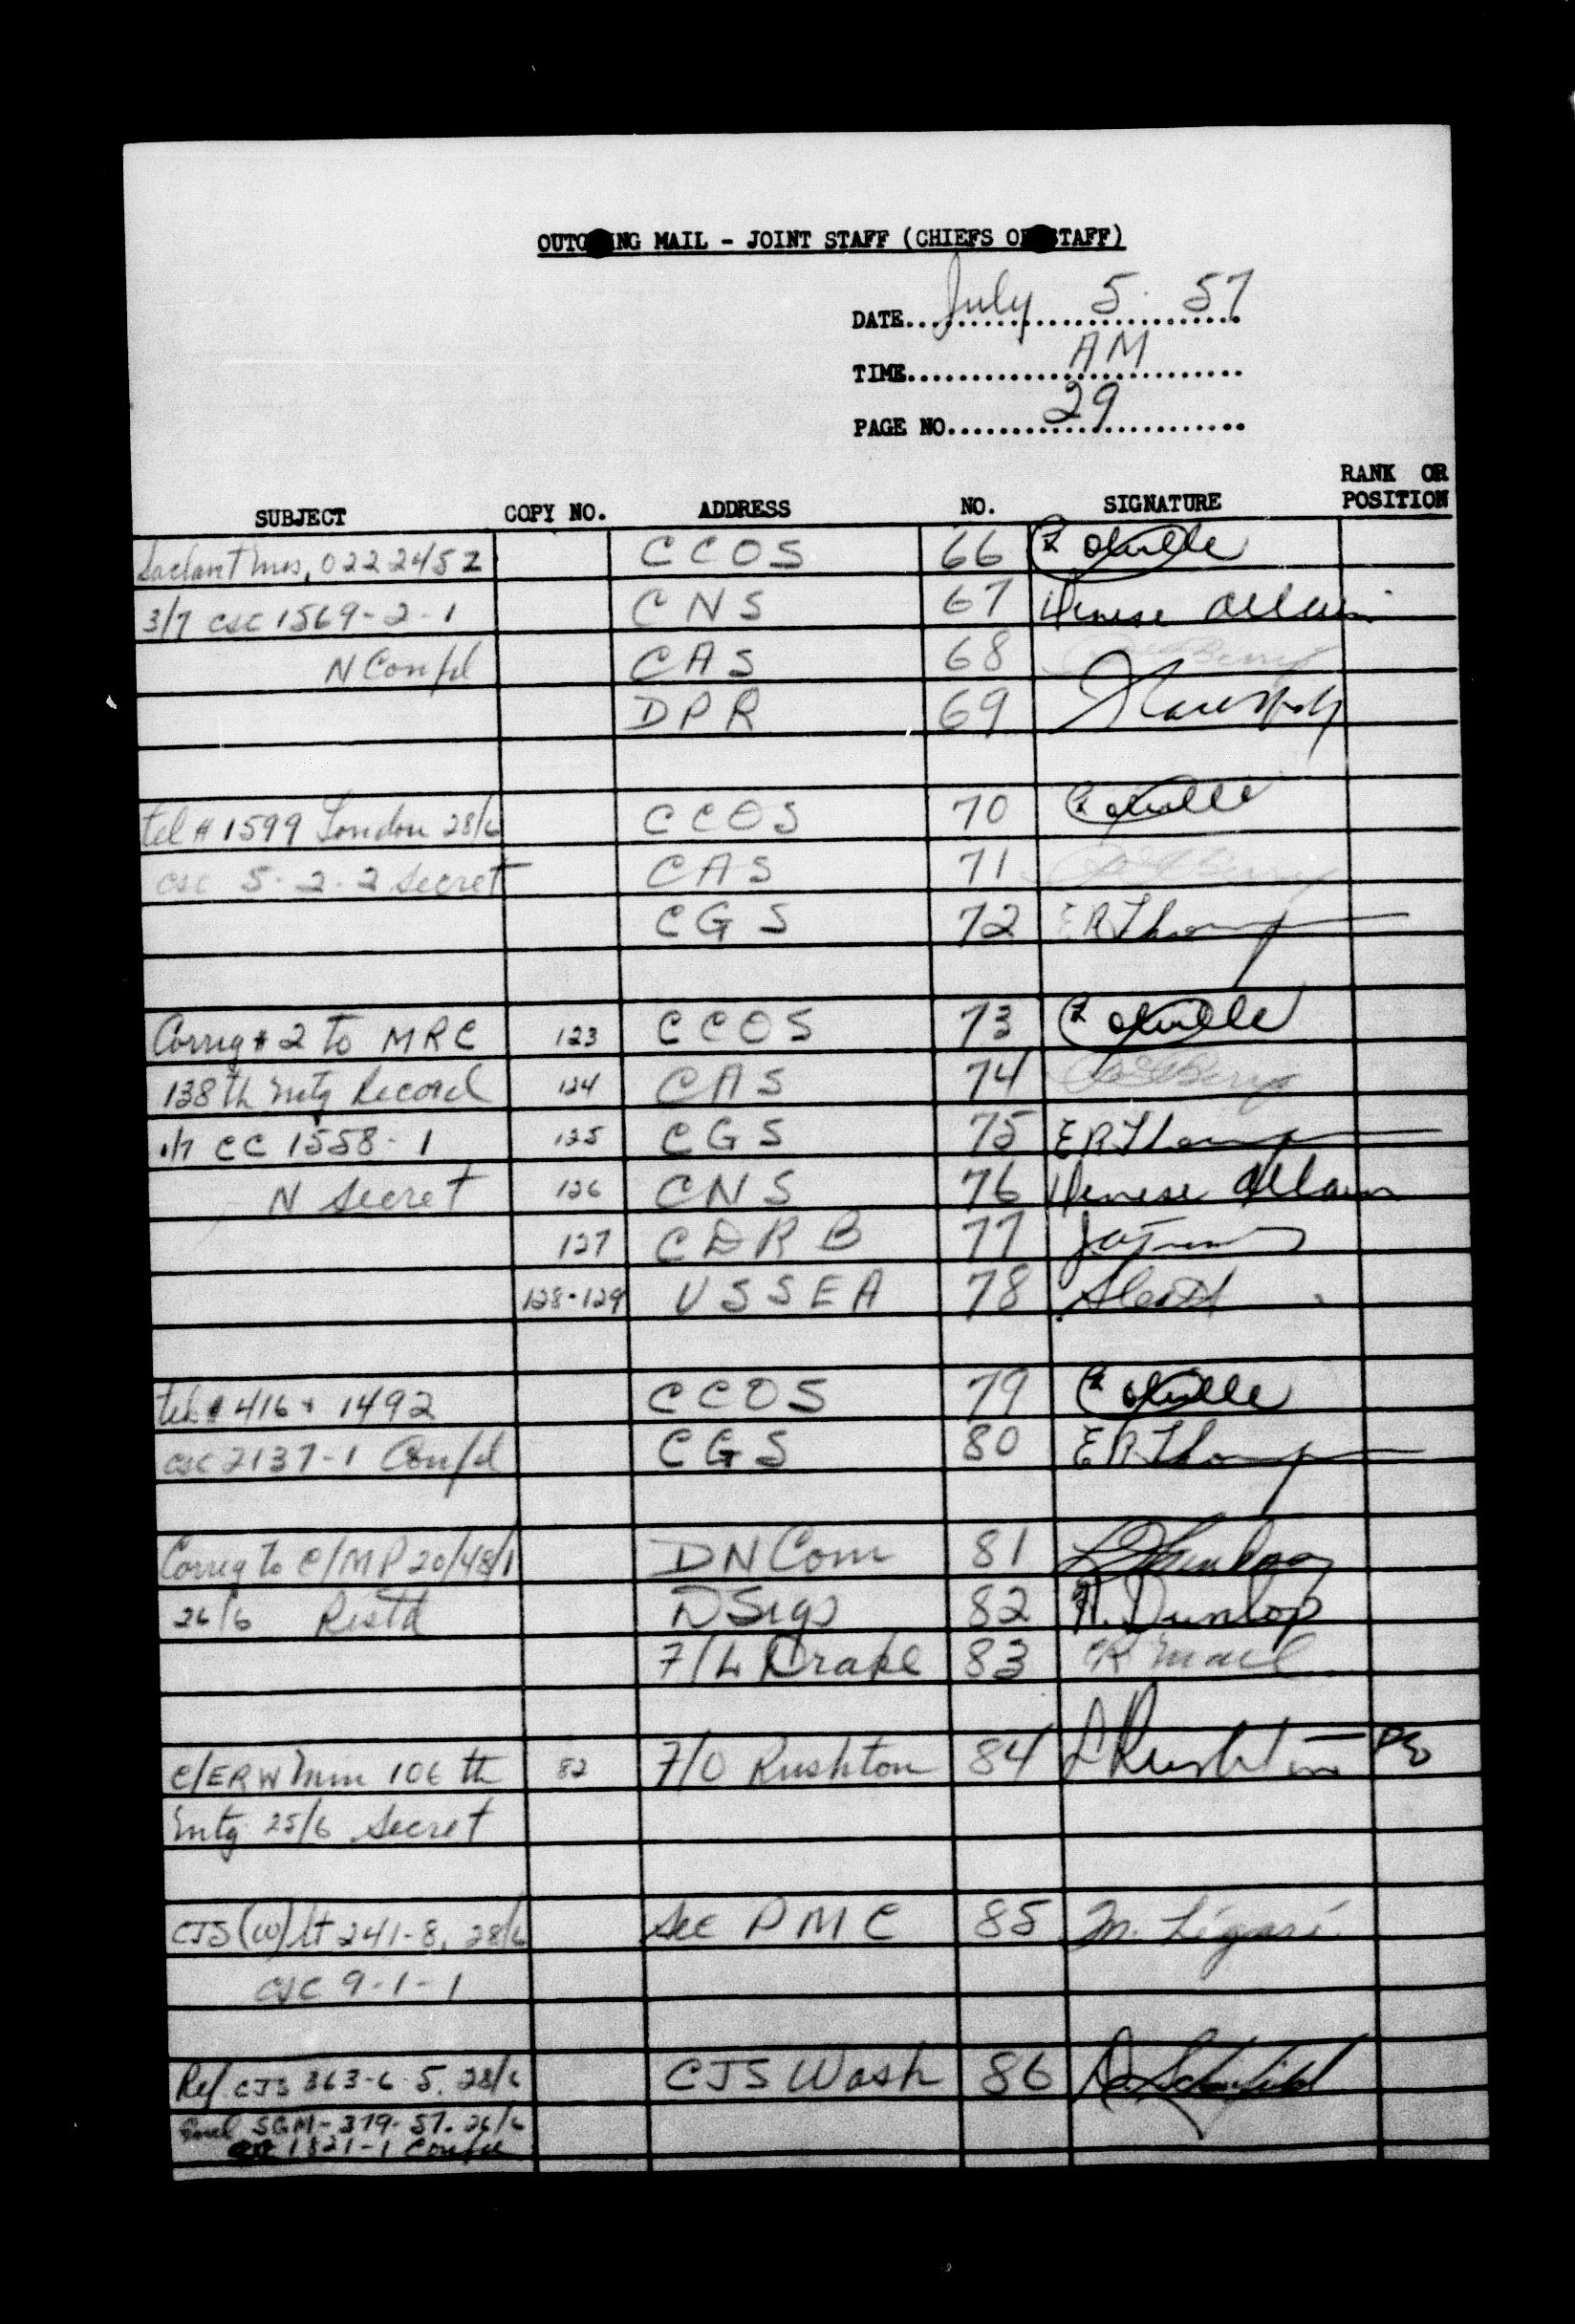 OUTGOING MAIL - JOINT STAFF (CHIEFS OF STAFF)
DATE July 5. 57
TIME AM
PAGE NO 29
SUBJECT COPY NO. ADDRESS NO. SIGNATURE RANK OR POSITION
Saclant mes, 022245Z CCOS 66
3/7 csc 1569-2-1 CNS 67 Denise Allain
N Confd CAS 68 Berry
DPR 69
tel # 1599 London 28/6 CCOS 70
csc 5-2-2 Secret CAS 71 Berry
CGS 72 ER Thomp
Corrig # 2 to MRC 123 CCOS 73
138th mtg Record 124 CAS 74 Berry
1/7 CC 1558-1 125 CGS 75 ER Thomp
N Secret 126 CNS 76 Denise Allain
127 CDRB 77
128-129 USSEA 78
tel # 416 + 1492 CCOS 79
csc 2137-1 Confd CGS 80 ER Thomp
Corrig to C/MP 20/48/1 DNCom 81
26/6 Restd DSigs 82 Dunlop
F/L Drake 83
C/ERW min 106th 82 F/O Rushton 84 L Rushton
mtg 25/6 Secret
CJS(W) lt 241-8, 28/6 Sec PMC 85 M. Légaré
csc 9-1-1
Ref. CJS 363-6-5. 28/6 CJS Wash 86
Encl SGM-379-57. 26/6
1821-1 Confd